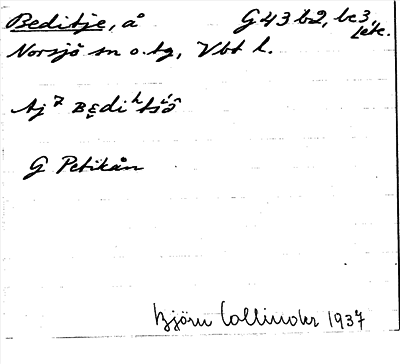 Beditje, å G43 b2, bc3,
Lcke.
Norsjö sn o. tg, Vbt l.
Aj 7 Bẹdi tsiö
G Petikån
Björn Collinder 1937